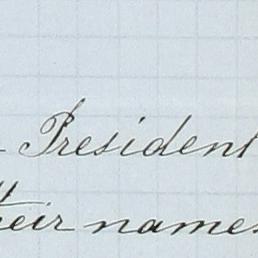 - President
their names